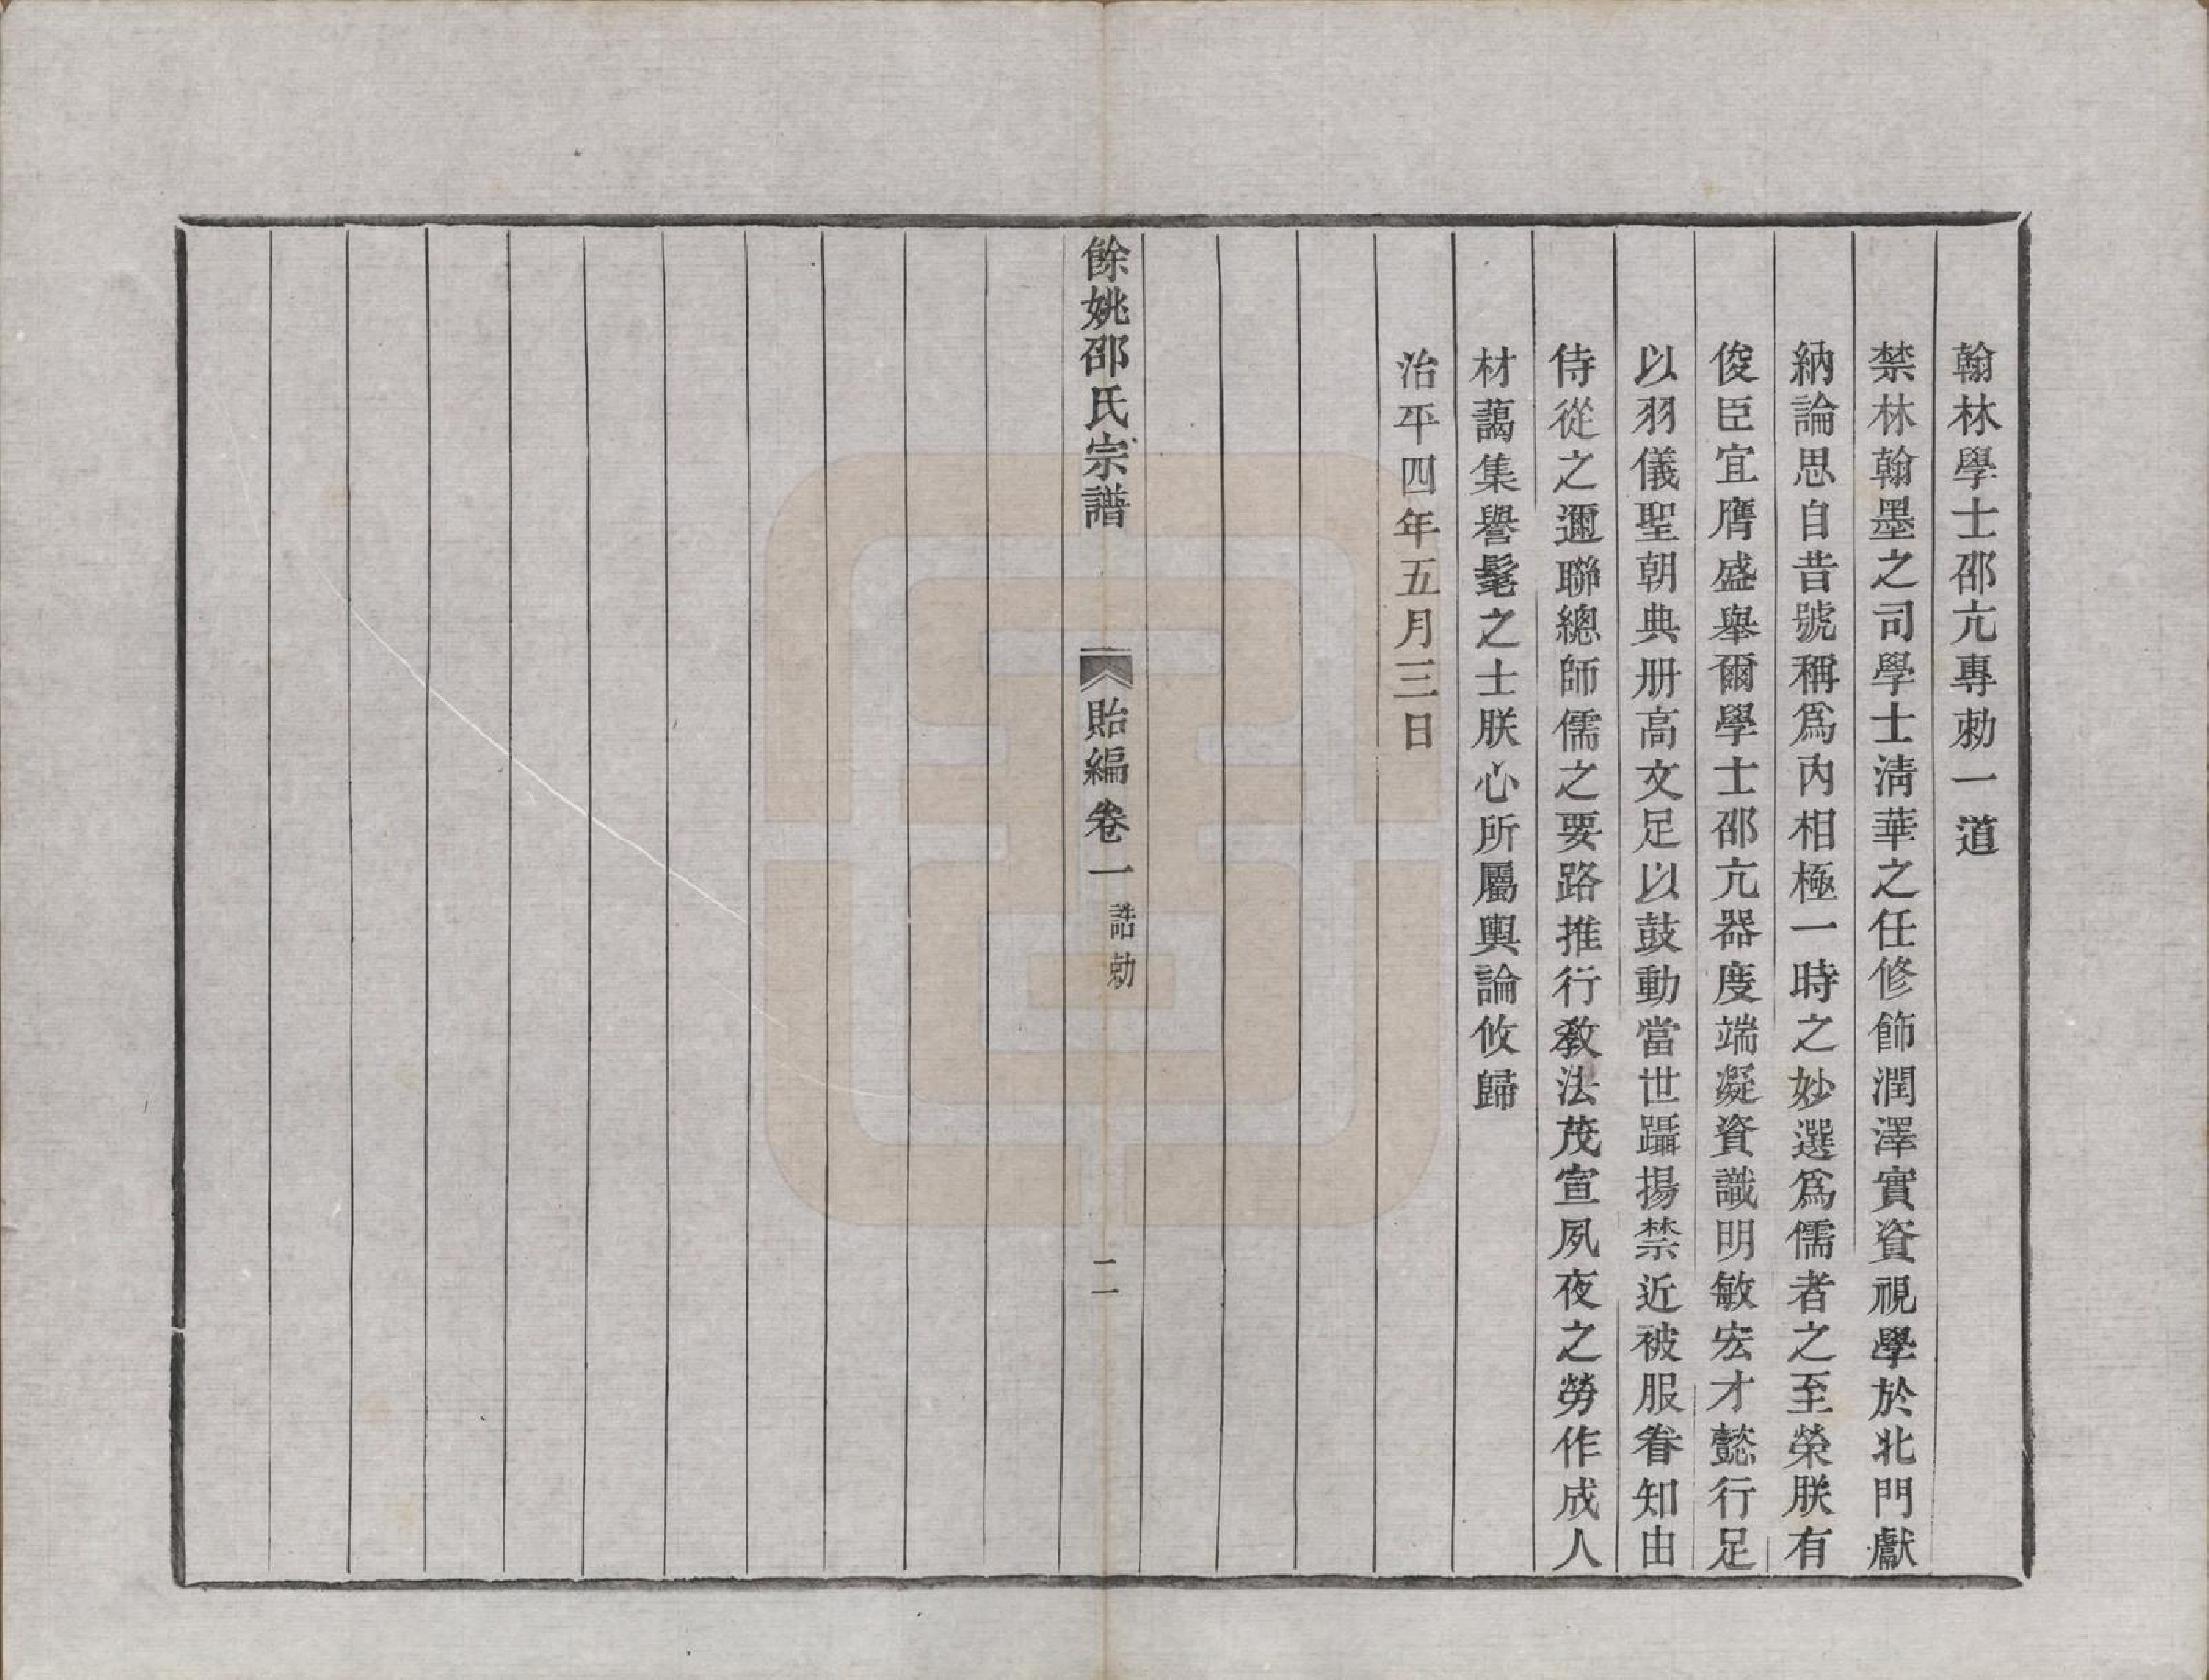 翰林學士邵亢專勅一道
禁林翰墨之司學士淸華之任修飾潤澤實資視學於北門獻
納論思自昔號稱爲内相極一時之妙選爲儒者之至榮朕有
俊臣宜膺盛舉爾學士邵亢器度端凝資識明敏宏才懿行足
以羽儀聖朝典册高文足以鼓動當世躡揚禁近被服眷知由
侍從之邇聯總師儒之要路推行敎法茂宣夙夜之勞作成人
材藹集譽髦之士朕心所屬輿論攸歸
治平四年五月三日
餘姚邵氏宗譜
貽編卷一 誥勅
二